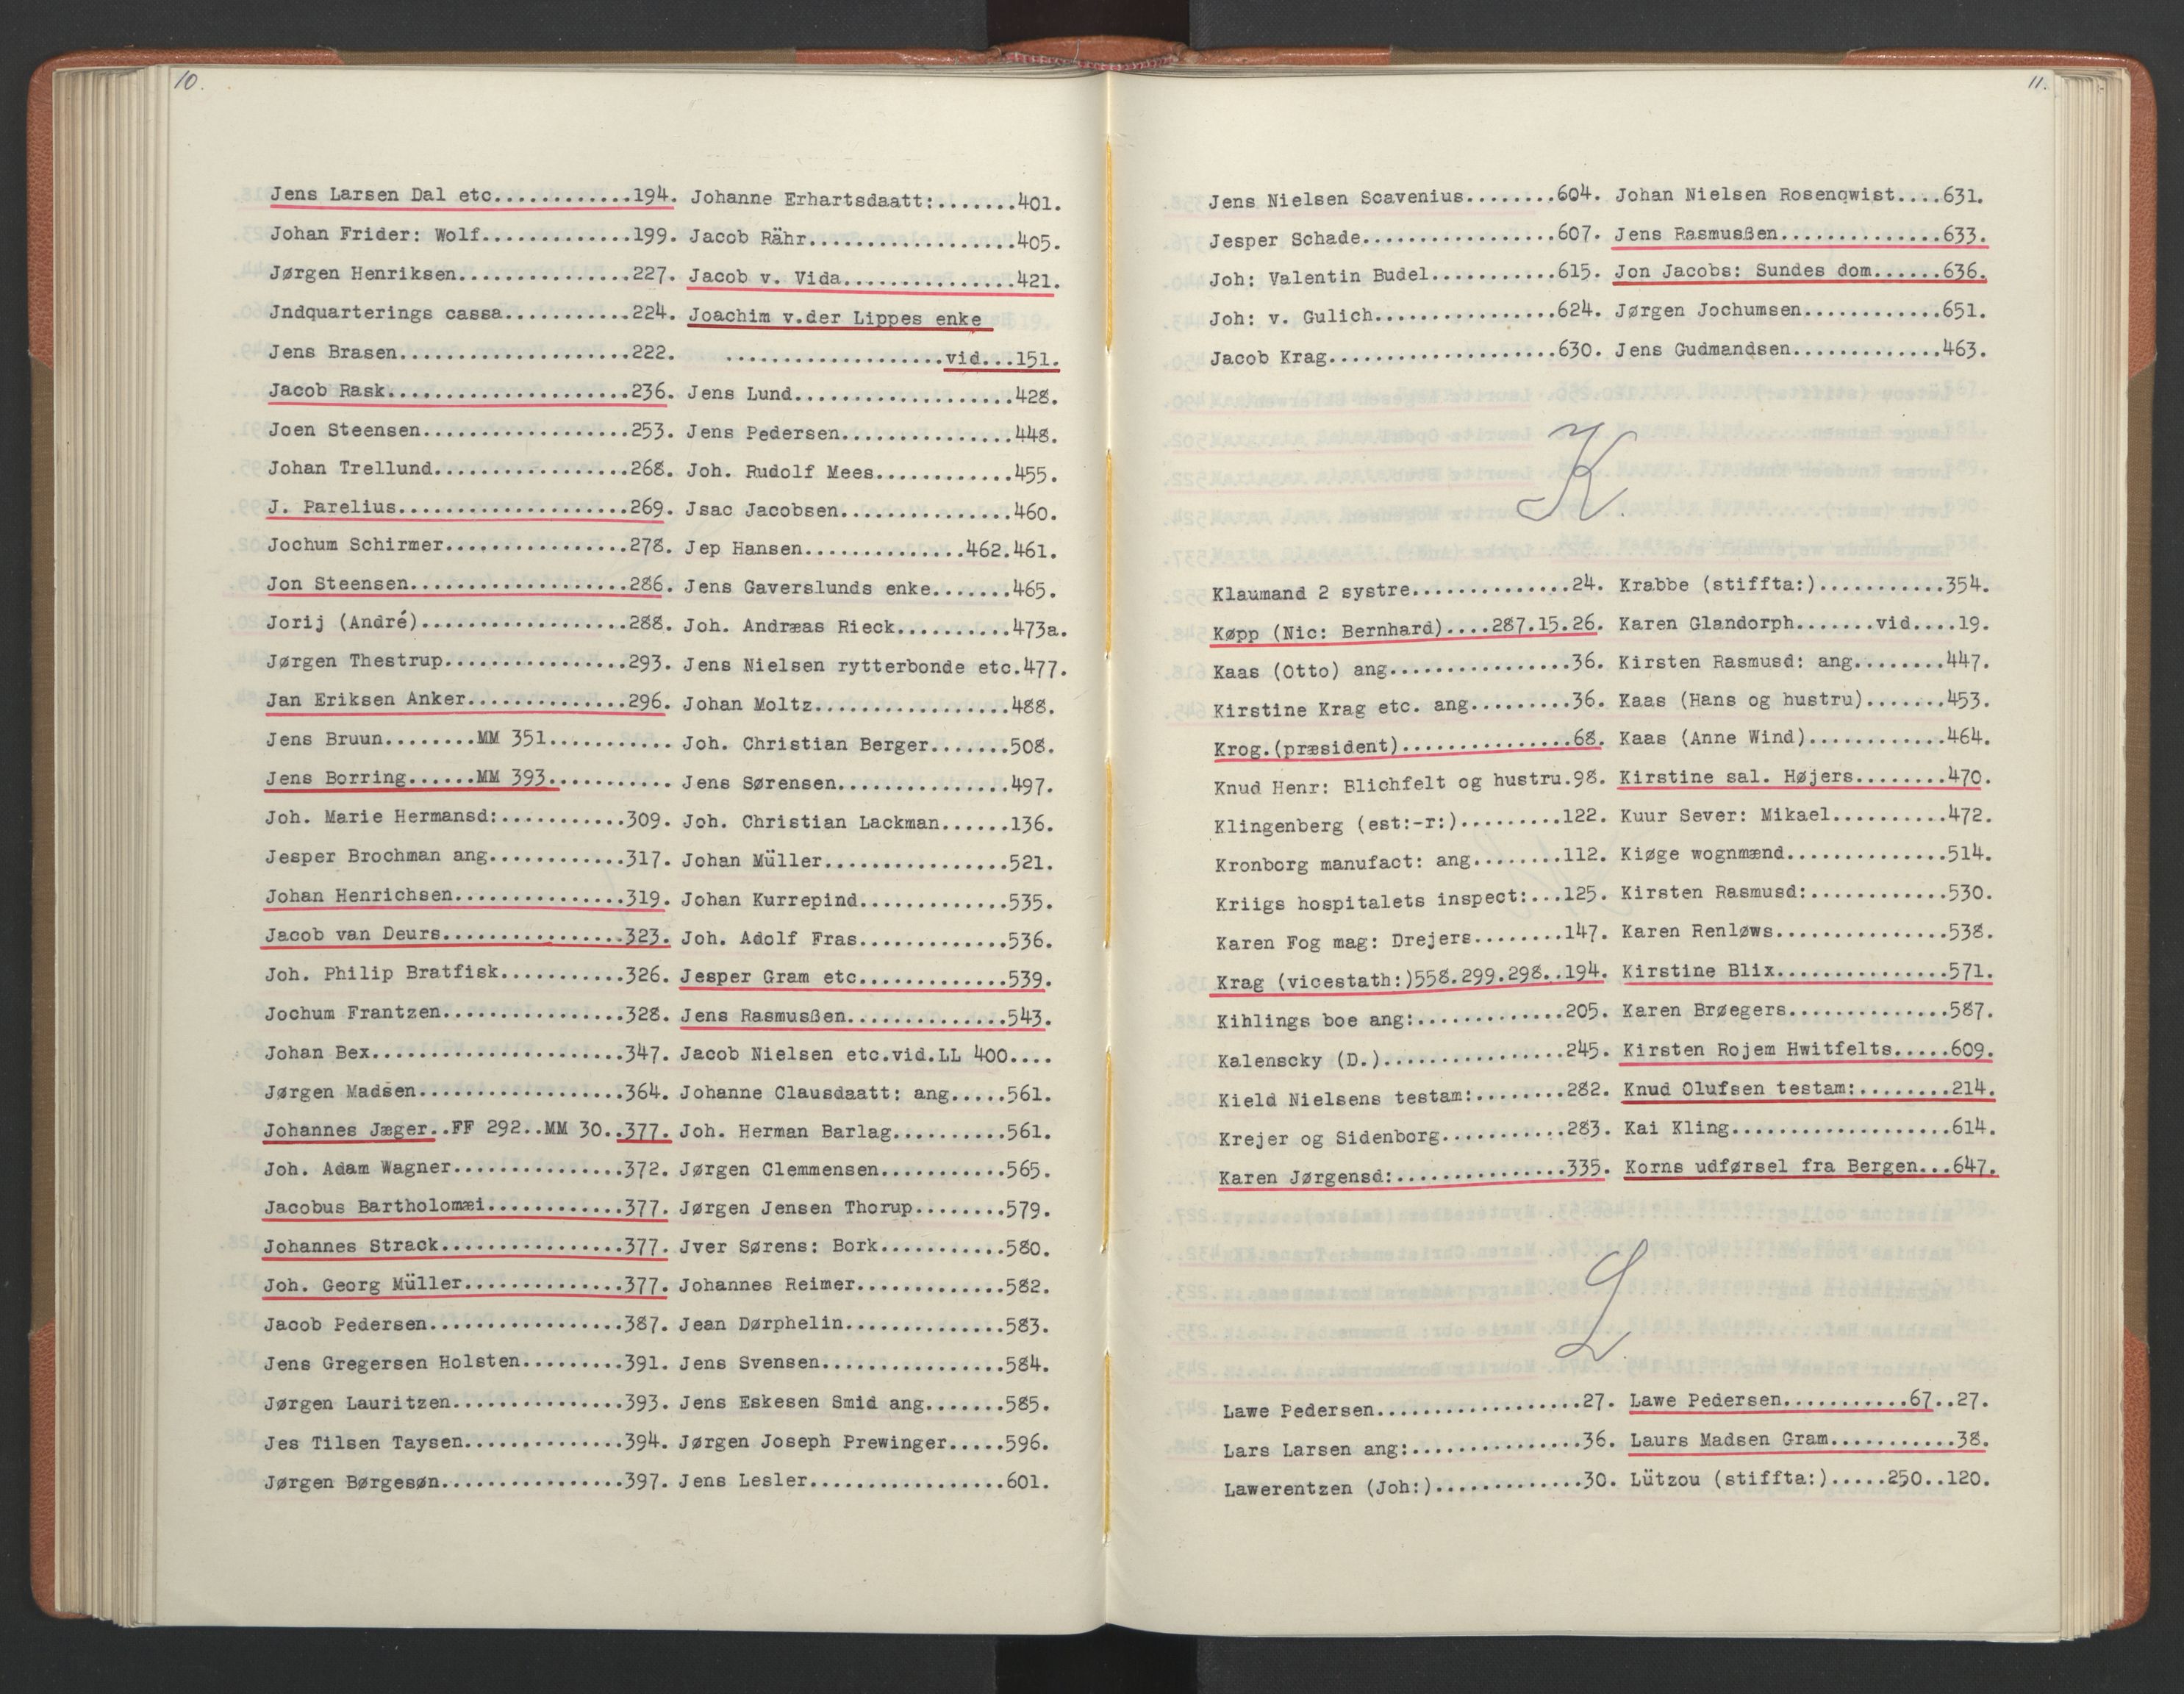 10.
Jens Larsen Dal etc............194.
Johan Frider: Wolf.............199.
Jørgen Henriksen...............227.
Jndquarterings cassa...........224.
Jens Brasen....................222.
Jacob Rask.....................236.
Joen Steensen..................253.
Johan Trellund.................268.
J. Parelius....................269.
Jochum Schirmer................278.
Jon Steensen...................286.
Jorij (André)..................288.
Jørgen Thestrup................293.
Jan Eriksen Anker..............296.
Jens Bruun........MM 351...........
Jens Borring......MM 393...........
Joh. Marie Hermansd:...........309.
Jesper Brochman ang............317.
Johan Henrichsen...............319.
Jacob van Deurs................323.
Joh. Philip Bratfisk...........326.
Jochum Frantzen................328.
Johan Bex......................347.
Jørgen Madsen..................364.
Johannes Jæger..FF 292..MM 30..377.
Joh. Adam Wagner...............372.
Jacobus Bartholomæi............377.
Johannes Strack................377.
Joh. Georg Müller..............377.
Jacob Pedersen.................387.
Jens Gregersen Holsten.........391.
Jørgen Lauritzen...............393.
Jes Tilsen Taysen..............394.
Jørgen Børgesøn................397.
Johanne Erhartsdaatt:.......401.
Jacob Rähr..................405.
Jacob v. Vida...............421.
Joachim v.der Lippes enke
...................vid...151.
Jens Lund...................428.
Jens Pedersen...............448.
Joh. Rudolf Mees............455.
Jsac Jacobsen...............460.
Jep Hansen..............462.461.
Jens Gaverslunds enke.......465.
Joh. Andræas Rieck..........473a.
Jens Nielsen rytterbonde etc.477.
Johan Moltz.................488.
Joh. Christian Berger.......508.
Jens Sørensen...............497.
Joh. Christian Lackman......136.
Johan Müller................521.
Johan Kurrepind.............535.
Joh. Adolf Fras.............536.
Jesper Gram etc.............539.
Jens Rasmusßen..............543.
Jacob Nielsen etc.vid.LL 400....
Johanne Clausdaatt: ang.....561.
Joh. Herman Barlag..........561.
Jørgen Clemmensen...........565.
Jørgen Jensen Thorup........579.
Jver Sørens: Bork...........580.
Johannes Reimer.............582.
Jean Dørphelin..............583.
Jens Svensen................584.
Jens Eskesen Smid ang.......585.
Jørgen Joseph Prewinger.....596.
Jens Lesler.................601.
11.
Jens Nielsen Scavenius........604.
Jesper Schade.................607.
Joh: Valentin Budel...........615.
Joh: v. Gulich................624.
Jacob Krag....................630.
Johan Nielsen Rosenqwist....631.
Jens Rasmusßen..............633.
Jon Jacobs: Sundes dom......636.
Jørgen Jochumsen............651.
Jens Gudmandsen.............463.
K.
Klaumand 2 systre..............24.
Køpp (Nic: Bernhard)....287.15.26.
Kaas (Otto) ang................36.
Kirstine Krag etc. ang.........36.
Krog.(præsident)...............68.
Knud Henr: Blichfelt og hustru.98.
Klingenberg (est:-r:).........122.
Kronborg manufact: ang........112.
Kriigs hospitalets inspect:...125.
Karen Fog mag: Drejers........147.
Krag (vicestath:)558.299.298..194.
Kihlings boe ang:.............205.
Kalenscky (D.)................245.
Kield Nielsens testam:........282.
Krejer og Sidenborg...........283.
Karen Jørgensd:...............335.
Krabbe (stiffta:)...........354.
Karen Glandorph.......vid....19.
Kirsten Rasmusd: ang........447.
Kaas (Hans og hustru).......453.
Kaas (Anne Wind)............464.
Kirstine sal. Højers........470.
Kuur Sever: Mikael..........472.
Kiøge wognmænd..............514.
Kirsten Rasmusd:............530.
Karen Renløws...............538.
Kirstine Blix...............571.
Karen Brøegers..............587.
Kirsten Rojem Hwitfelts.....609.
Knud Olufsen testam:........214.
Kai Kling...................614.
Korns udførsel fra Bergen...647.
L.
Lawe Pedersen..................27.
Lars Larsen ang:...............36.
Lawerentzen (Joh:).............30.
Lawe Pedersen...........67..27.
Laurs Madsen Gram...........38.
Lützou (stiffta:).....250..120.